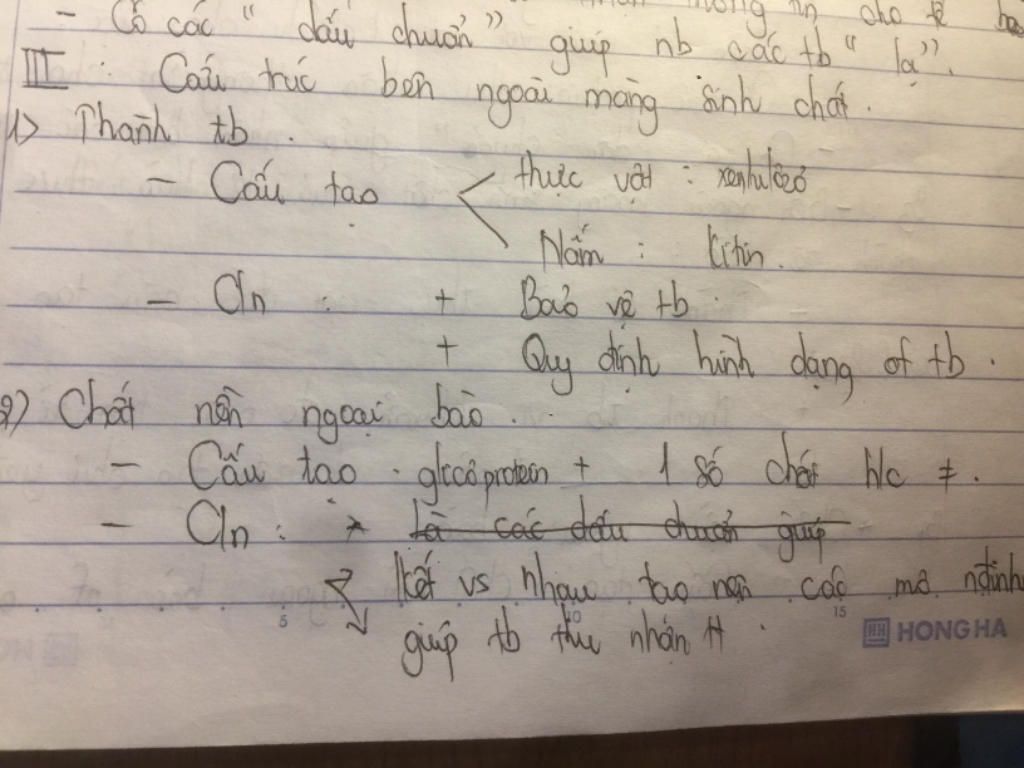 thông tin cho tế bào
- Có các "dấu chuẩn" giúp nb các tb "lạ".
III. Cấu trúc bên ngoài màng sinh chất.
1) Thành tb.
- Cấu tạo thực vật: xenlulôzơ
Nấm: kitin.
- Cn: + Bảo vệ tb.
+ Quy định hình dạng of tb.
2) Chất nền ngoại bào.
- Cấu tạo. glicôprotein + 1 số chất h/c ≠.
- Cn: * Là các dấu chuẩn giúp
lkết vs nhau tạo nên các mô nđịnh
giúp tb thu nhận tt.
5 10 15
HH HONG HA